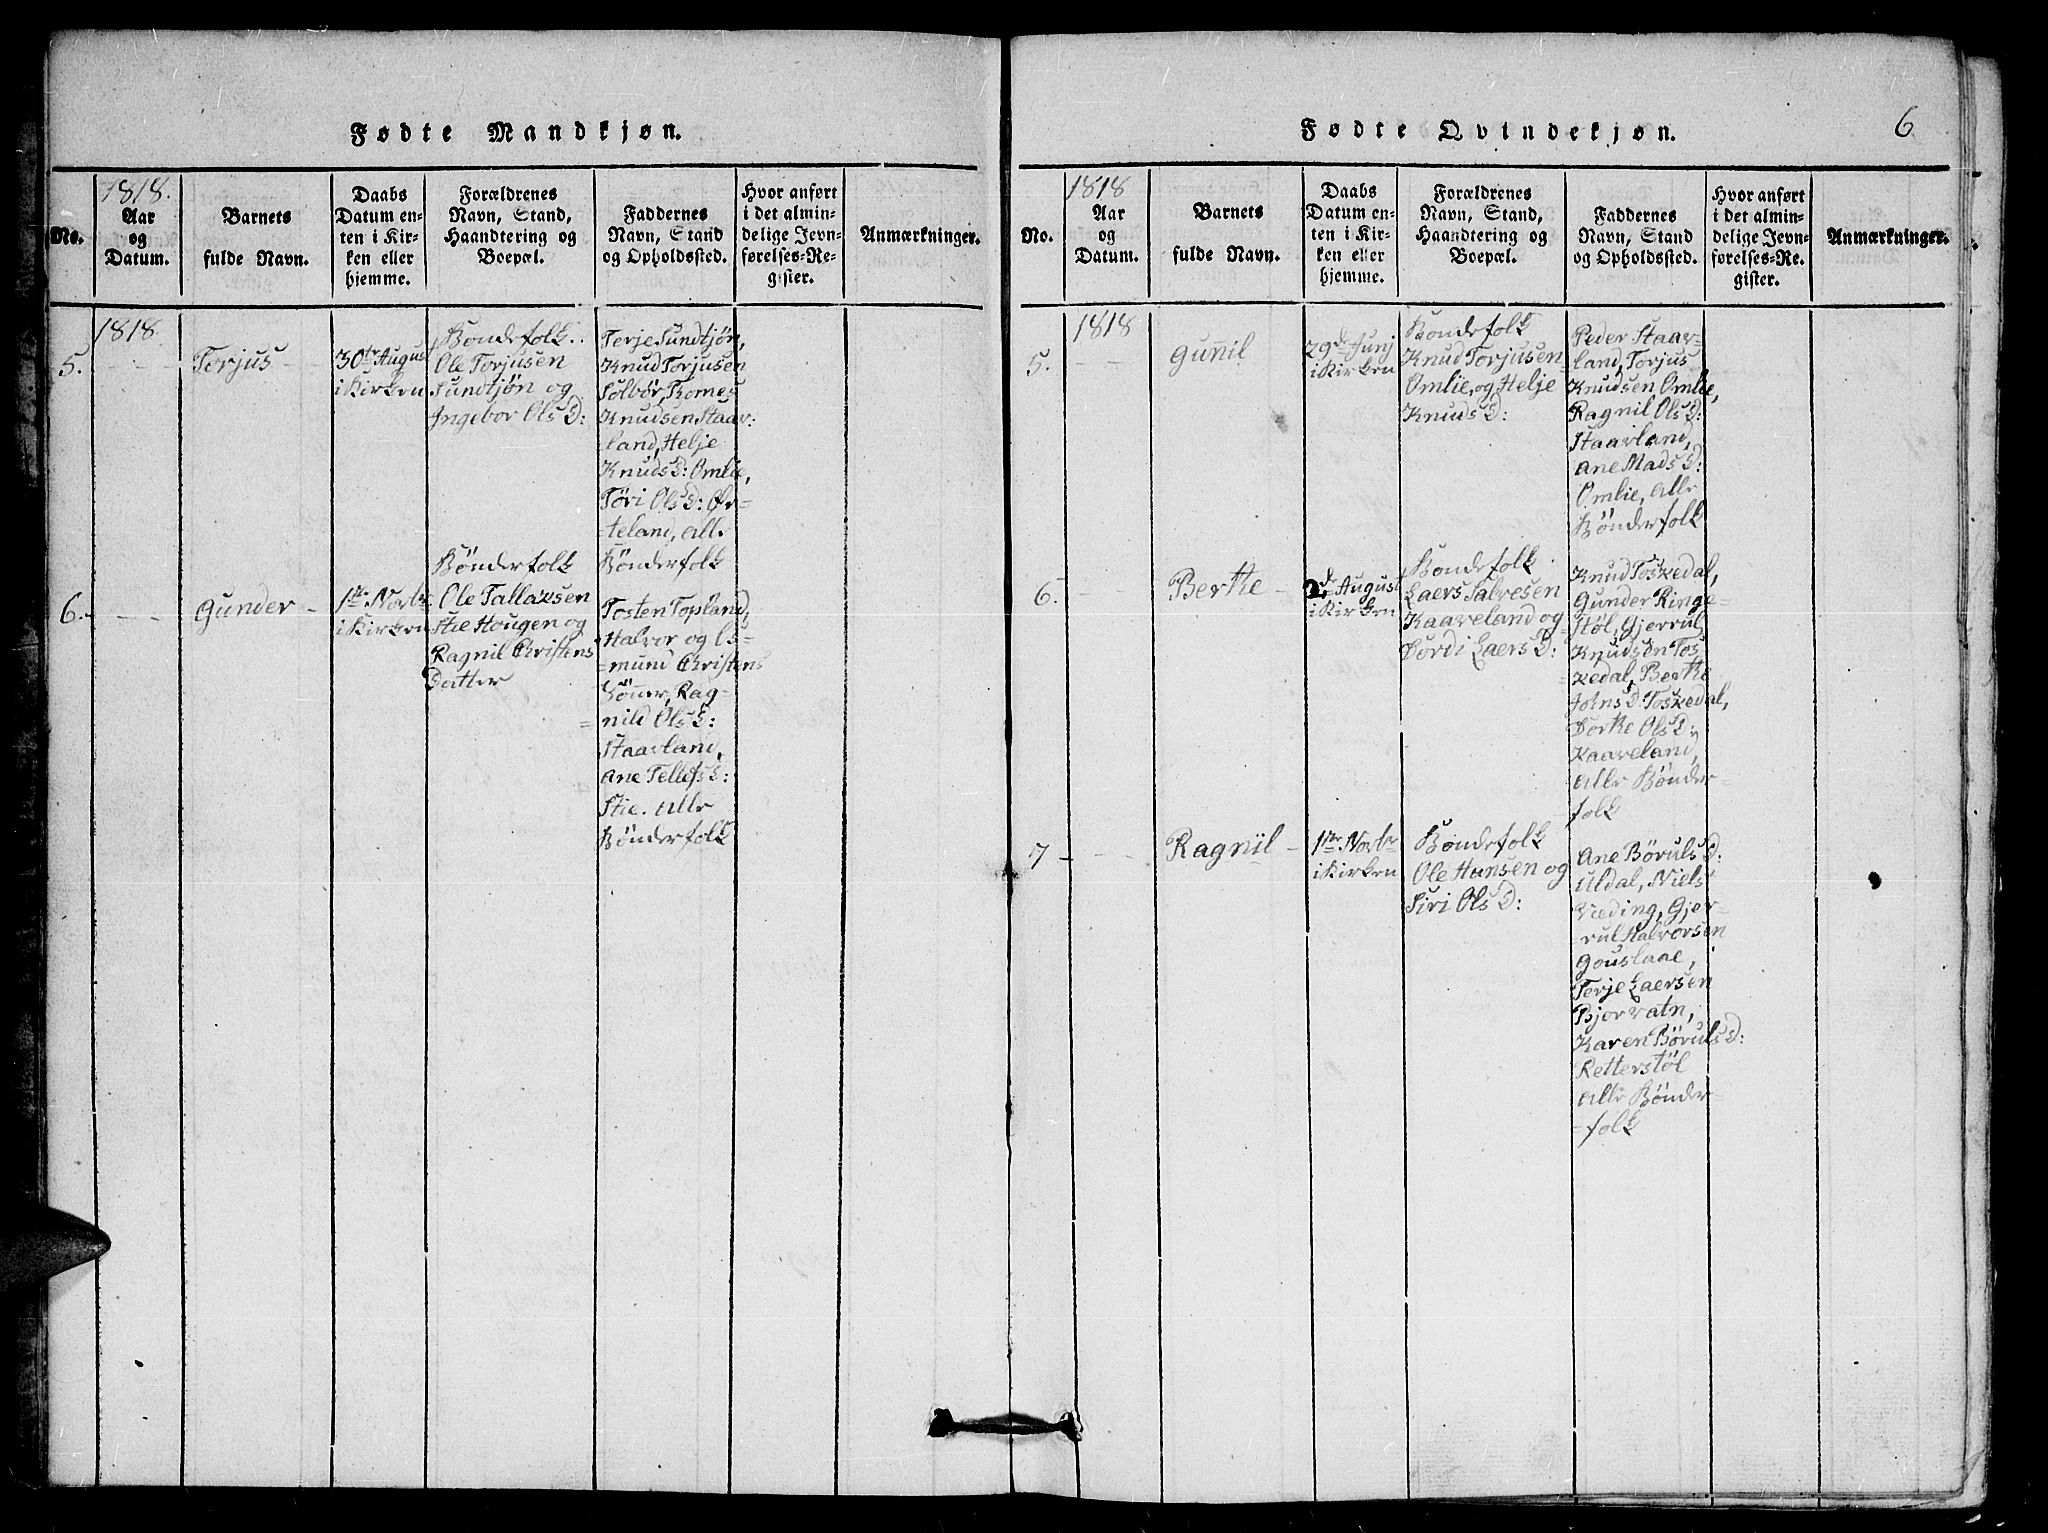 Fødte Mandkjøn.
No.
1818.
Aar
og
Datum.
Barnets
fulde Navn.
Daabs
Datum en-
ten i Kir-
ken eller
hjemme.
Forældrenes
Navn, Stand,
Haandtering og
Boepæl.
Faddernes
Navn, Stand
og Opholdssted.
Hvor anført
i det almin-
delige Jevn-
førelses-Re-
gister.
Anmærkninger.
1818.
5.
Torjus
30te August
i Kirken
Bondefolk
Ole Torjusen
Sundtjøn og
Ingebor Ols D:
Terje Sundtjøn,
Knud Torjusen
Sölbör, Tomes
Knudsen Staav-
land, Helje
Knuds D: Omlie,
Töri Ols D: Øv-
teland, alle
Bönderfolk
6.
Gunder
1ste Novbr.
i Kirken
Bönderfolk
Ole Tallaksen
Stie Hougen og
Ragnil Christens
Datter
Tosten Topland,
Halvor og Os-
mund Christens
Sönner, Rag-
nild Ols D:
Staavland,
Ane Tellefs D:
Stie. alle
Bönderfolk
Fødte Qvindekjøn.
6
No.
1818
Aar
og
Datum.
Barnets
fulde Navn.
Daabs
Datum en-
ten i Kir-
ken eller
hjemme.
Forældrenes
Navn, Stand,
Haandtering og
Boepæl.
Faddernes
Navn, Stand
og Opholdssted.
Hvor anført
i det almin-
delige Jevn-
førelses-Re-
gister.
Anmærkninger.
1818
5.
Gunil
29de Junj
i Kirken
Bondefolk
Knud Torjusen
Omlie, og Helje
Knuds D:
Peder Staav-
land, Torjus
Knudsen Omlie,
Ragnil Ols D:
Staavland,
Ane Mads D:
Omlie, alle
Bönderfolk
6.
Berthe
2de August
i Kirken
Bondefolk
Laers Salvesen
Kaaveland og
Dordi Laers D:
Knud Toskedal,
Gunder Ringe-
stöl, Gjerrul
Knudsen Tos-
kedal, Berthe
Johns D: Toskedal,
Dorthe Ols D:
Kaaveland,
alle Bönder-
folk
7
Ragnil
1ste Novbr
i Kirken
Böndefolk
Ole Hansen og
Siri Ols D:
Ane Böruls D:
Uldal, Niels
Væding, Gjer-
rul Halvorsen
Gouslaae,
Terje Laersen
Bjorvatn,
Karen Böruls D:
Retterstöl
alle Bönder-
folk